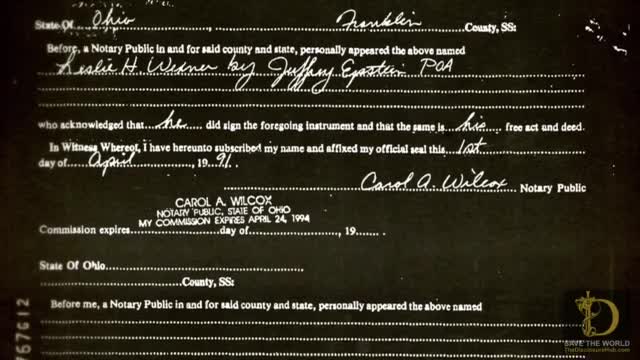 State Of Ohio, Franklin County, SS:
Before, a Notary Public in and for said county and state, personally appeared the above named
Leslie H. Wexner by Jeffrey Epstein POA
who acknowledged that he did sign the foregoing instrument and that the same is his free act and deed.
In Witness Whereof, I have hereunto subscribed my name and affixed my official seal this 1st
day of April, 1991.
Carol A. Wilcox Notary Public
CAROL A. WILCOX
NOTARY PUBLIC, STATE OF OHIO
MY COMMISSION EXPIRES APRIL 24, 1994
Commission expires day of, 19
State Of Ohio
County, SS:
Before me, a Notary Public in and for said county and state, personally appeared the above named
67G12
SAVE THE WORLD
TheDisclosureHub.com